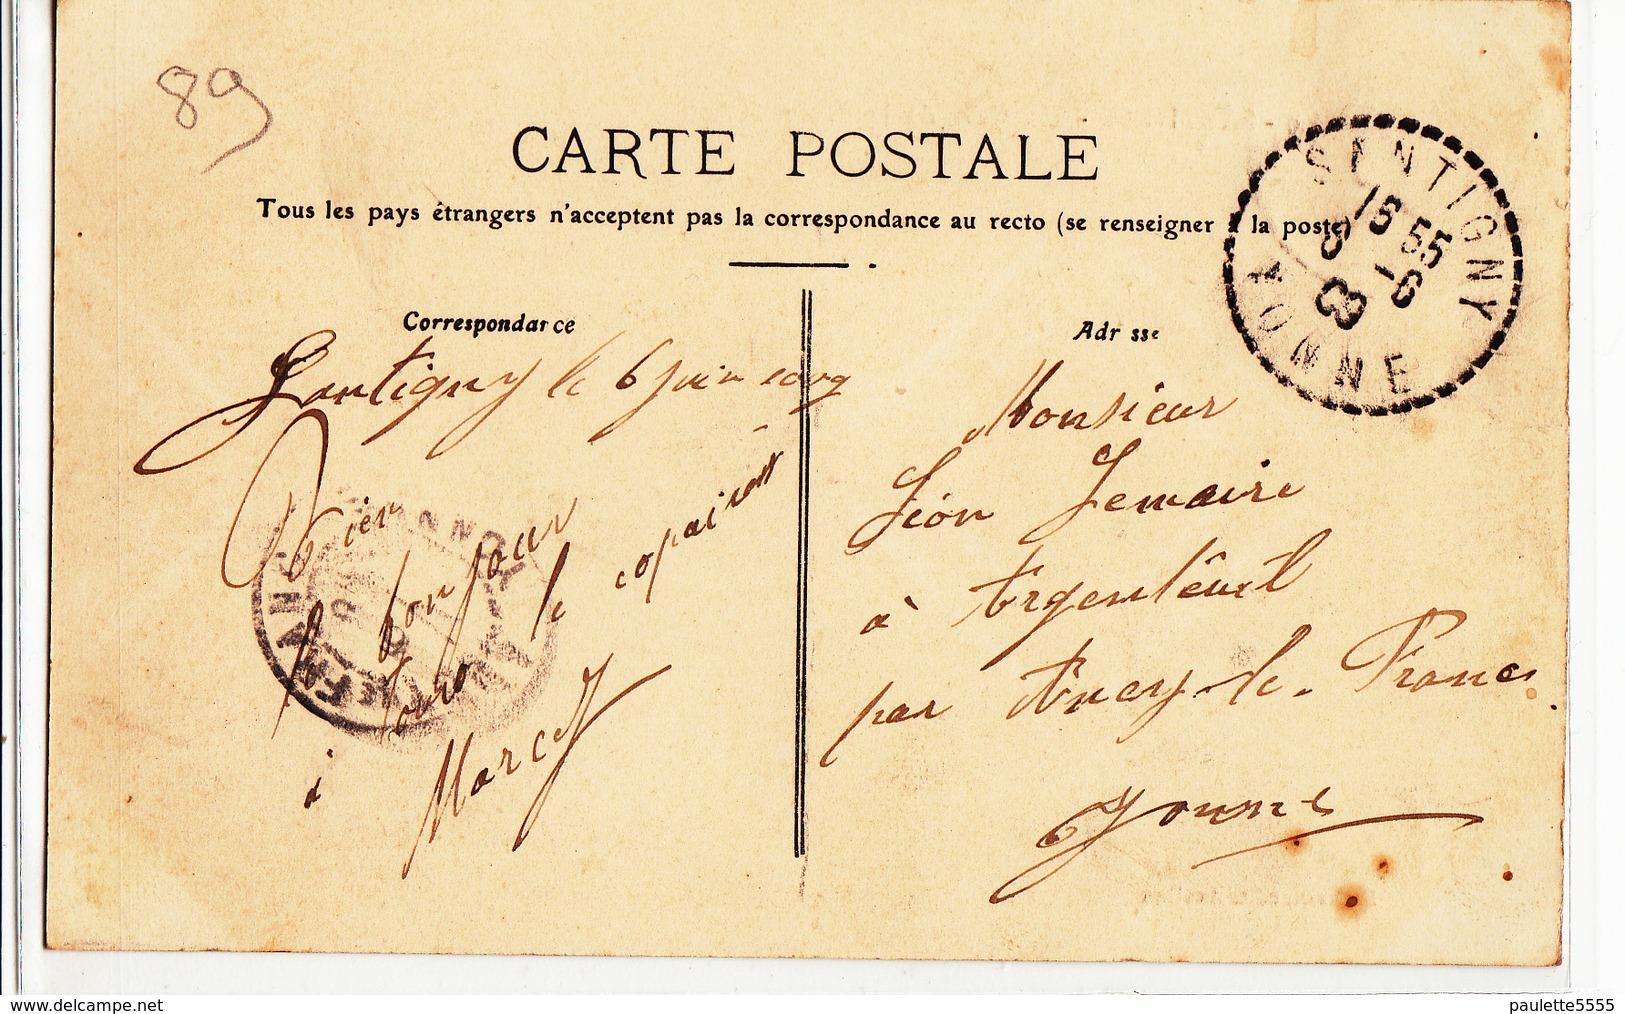 89
CARTE POSTALE
Tous les pays étrangers n'acceptent pas la correspondance au recto (se renseigner à la poste)
SENTIGNY
15 55
6 -6
YONNE
Correspondance
Santigny le 6 Juin 1909
Bien
le bonjour
à tous le copains
Marcel
Adresse
Monsieur
Léon Lemaire
à Argenteuil
par Ancy-le-Franc
Yonne
www.delcampe.net
paulette5555